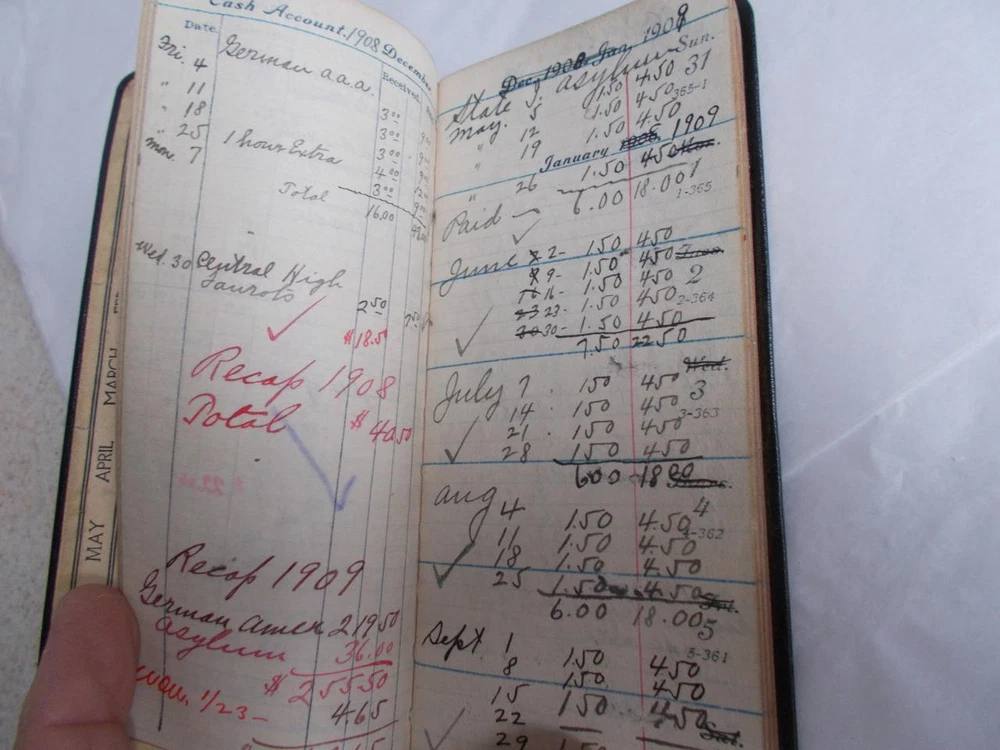 MAY APRIL MARCH
Cash Account. 1908 December
Date. Received.
Fri. 4 German a.a.a. 3 00
" 11 3 00
" 18 3 00
" 25 1 hour Extra 4 00
Mon. 7 3 00
Total 16.00
Wed. 30 Central High
2 50
$18.50
Recap 1908
Total $ 40 50
Recap 1909
German Amer 219 50
asylum 36.00
$ 255 50
1/23 - 465
Dec. 1908 Jan. 1909
State asylum Sun.
1.50 4.50 31
May. 5 1.50 4.50 365-1
" 12 1.50 4.50
" 19
January 1908 1909
" 26 1.50 4.50 Mon.
Paid 6.00 18.00 1
1-365
June 2- 1.50 4.50
9- 1.50 4.50
16- 1.50 4.50 2
23 23- 1.50 4.50 2-364
30 30- 1.50 4.50
7.50 22 50
Wed.
July 7 150 450 3
14. 150 450 3-363
21 150 450
28 150 450
600 18 00
Aug 4 1.50 4.50 4
11 1.50 4.50 4-362
18 1.50 4.50
25 1.50 4.50
6.00 18.00 5
5-361
Sept 1 1.50 4.50
8 150 450
15 150 4.50
22
29